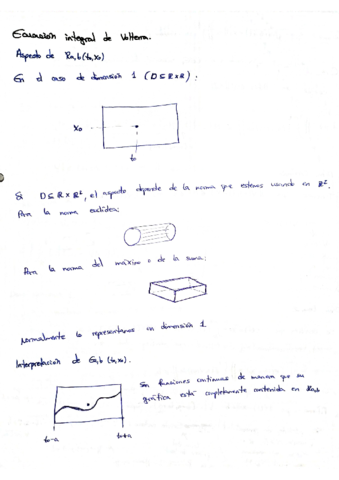 Ecuación integral de Volterra.
Aspecto de Ra,b(to,xo)
En el caso de dimensión 1 (D ⊆ R×R):
xo
to
Si D ⊆ R × R², el aspecto depende de la norma que estemos usando en R².
Para la norma euclídea:
Para la norma del máximo o de la suma:
Normalmente lo representamos en dimensión 1.
Interpretación de Ea,b (to,xo).
Son funciones continuas de manera que su
gráfica está completamente contenida en Ra,b
to-a
to+a